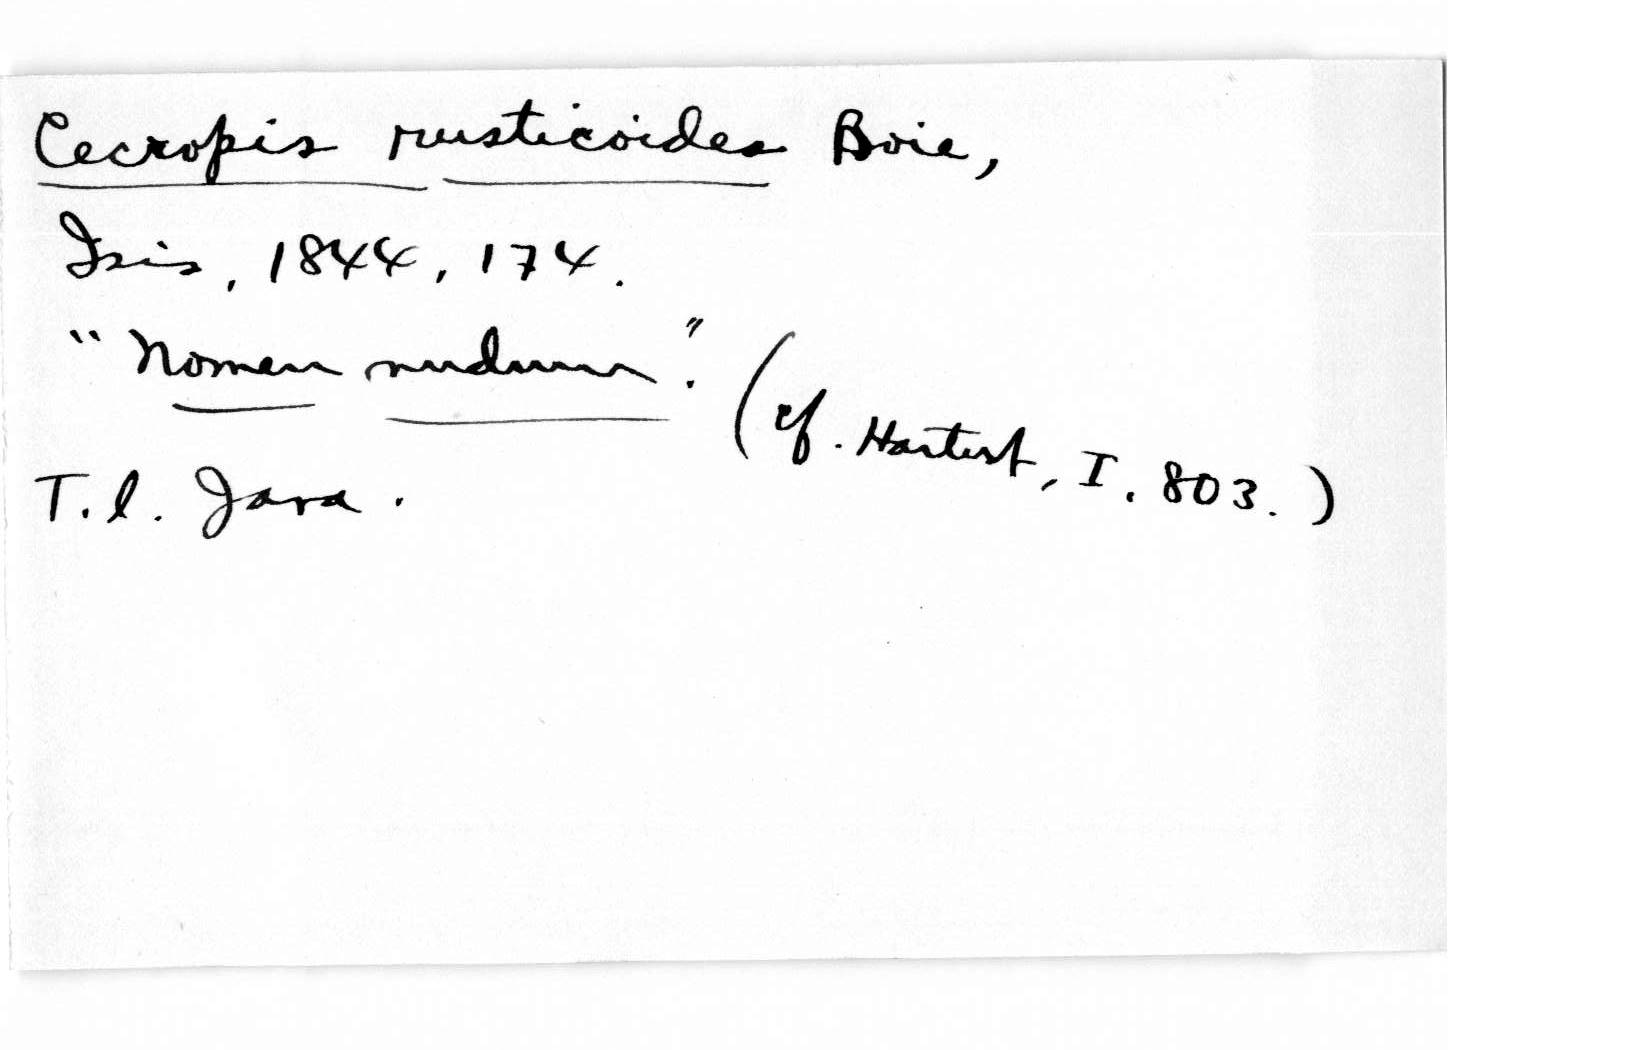 Cecropis rusticoides Boie,
Isis, 1844, 174.
"Nomen nudum". (cf. Hartert, I. 803.)
T.l. Java.